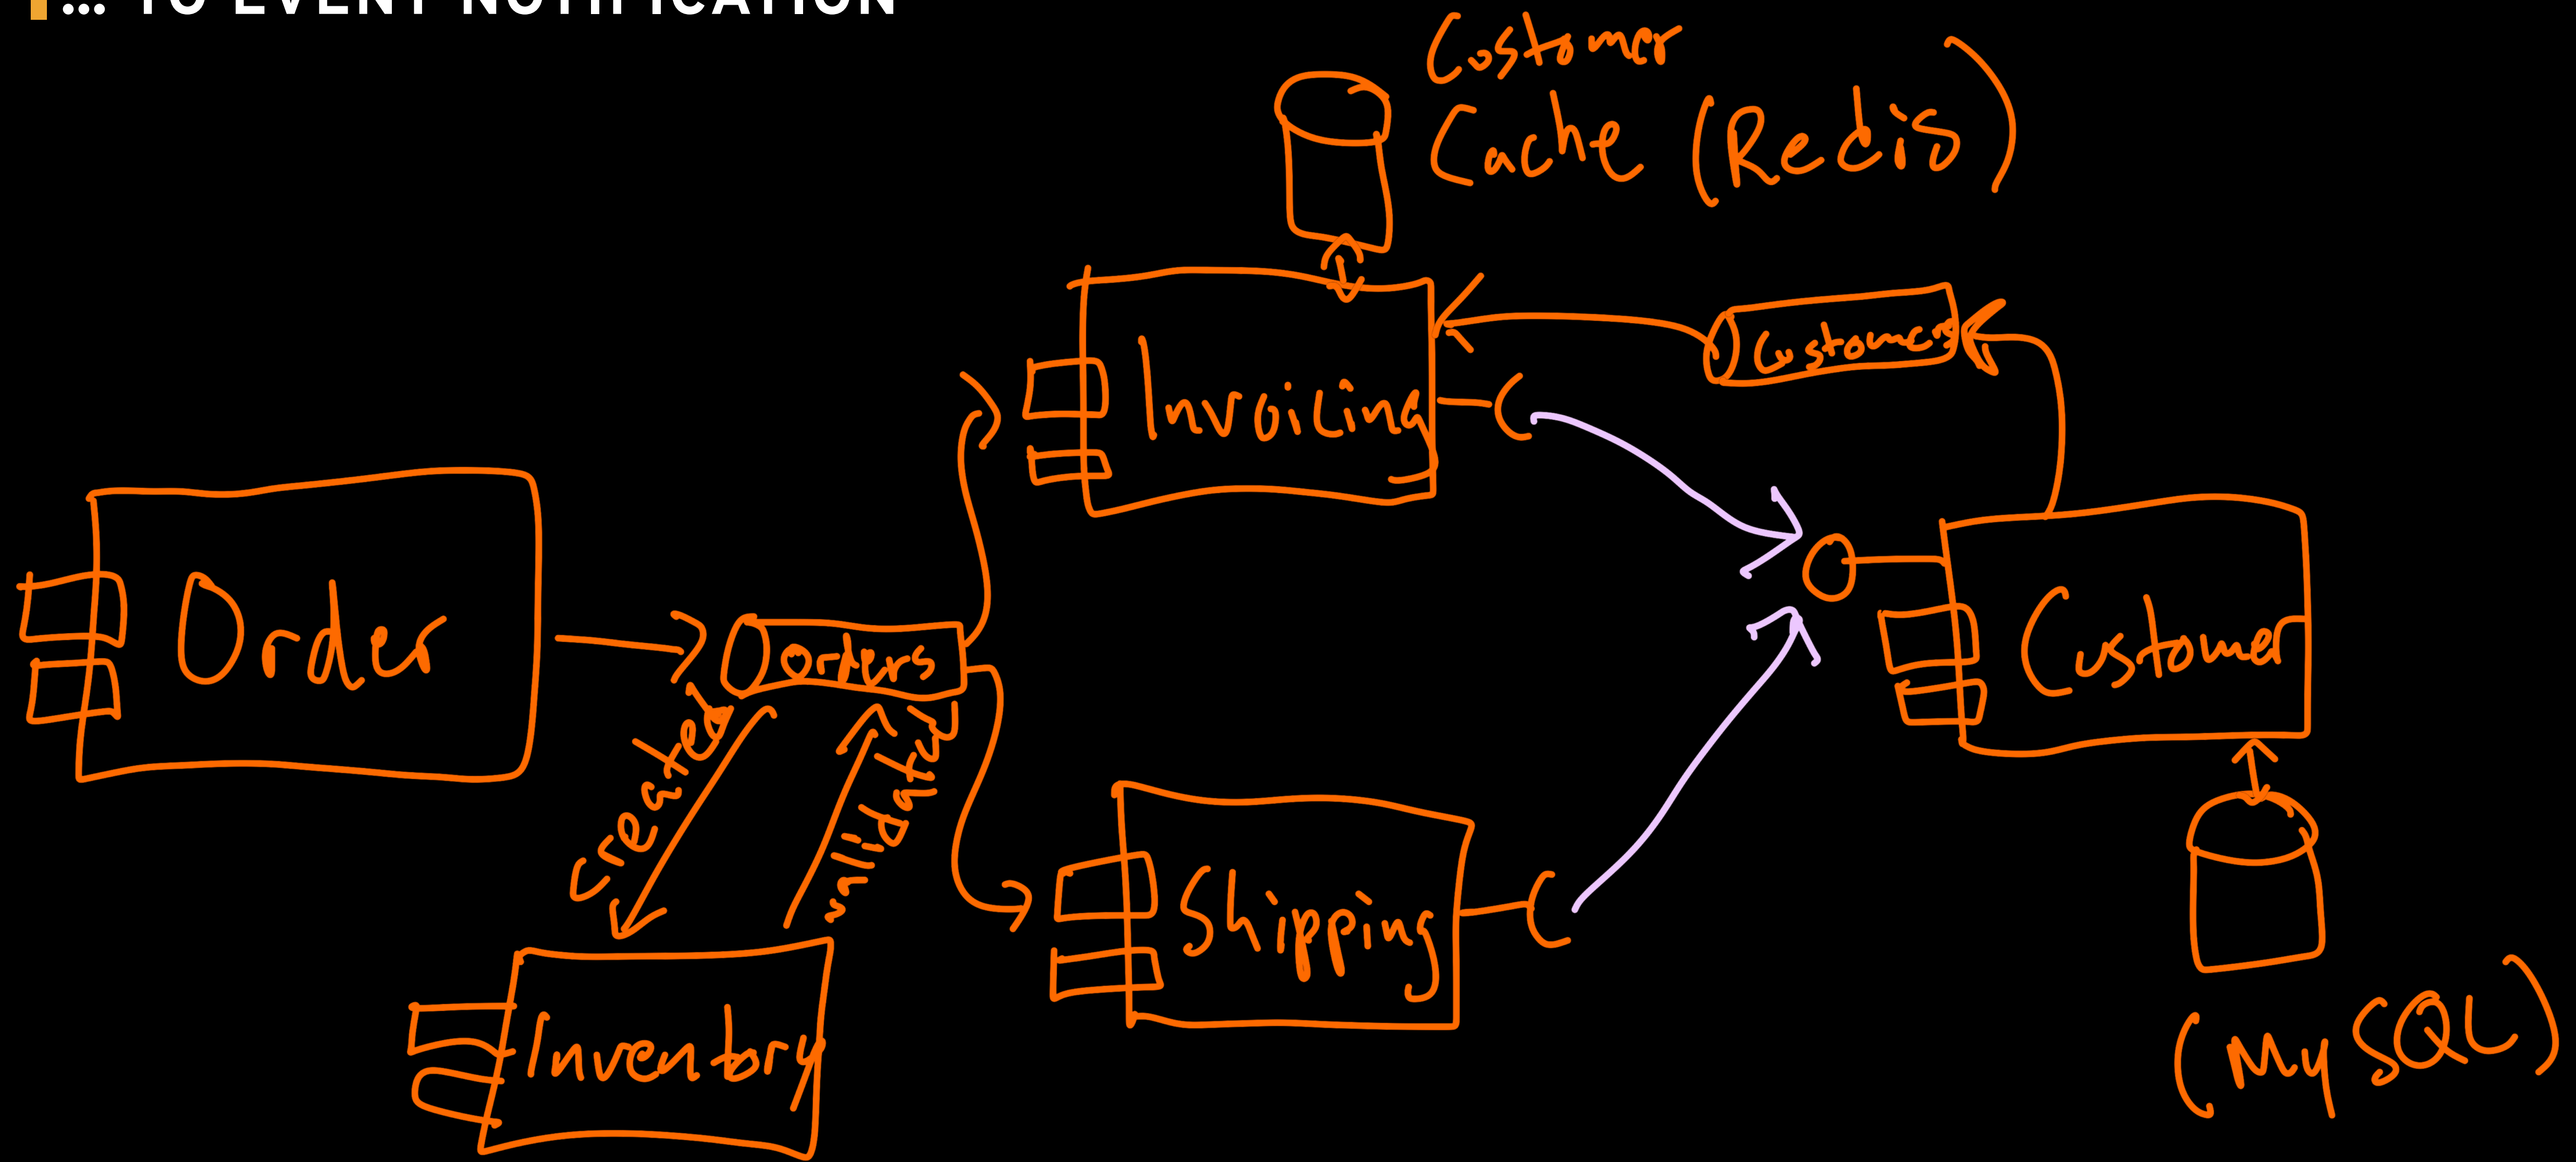 ... TO EVENT NOTIFICATION
Customer
Cache (Redis)
Invoicing
Customers
Order
Orders
created
validated
Customer
Shipping
Inventory
(MySQL)